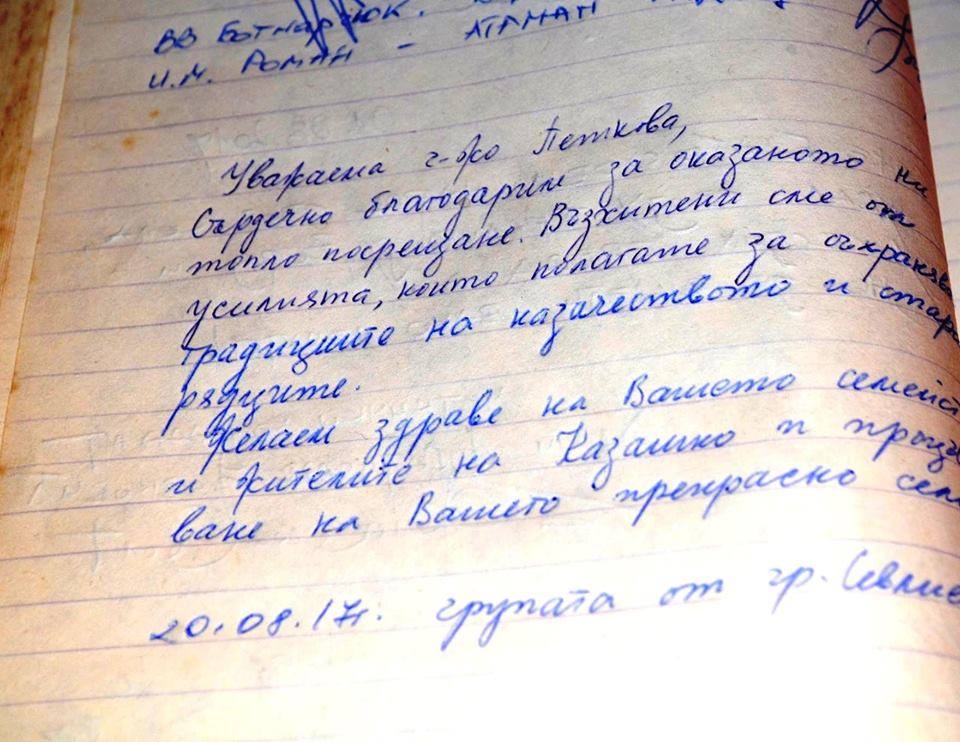 ВВ БОТНАРЮК.
И.М. РОМАН - АТАМАН
Уважаема г-жо Петкова,
Сърдечно благодарим за оказаното ни
топло посрещане. Възхитени сме от
усилията, които полагате за съхраняв
традициите на казачеството и старо
рядците.
Желаем здраве на Вашето семейст
и жителите на Казашко и процъ
ване на Вашето прекрасно сел
20.08.17г. групата от гр. Севлие